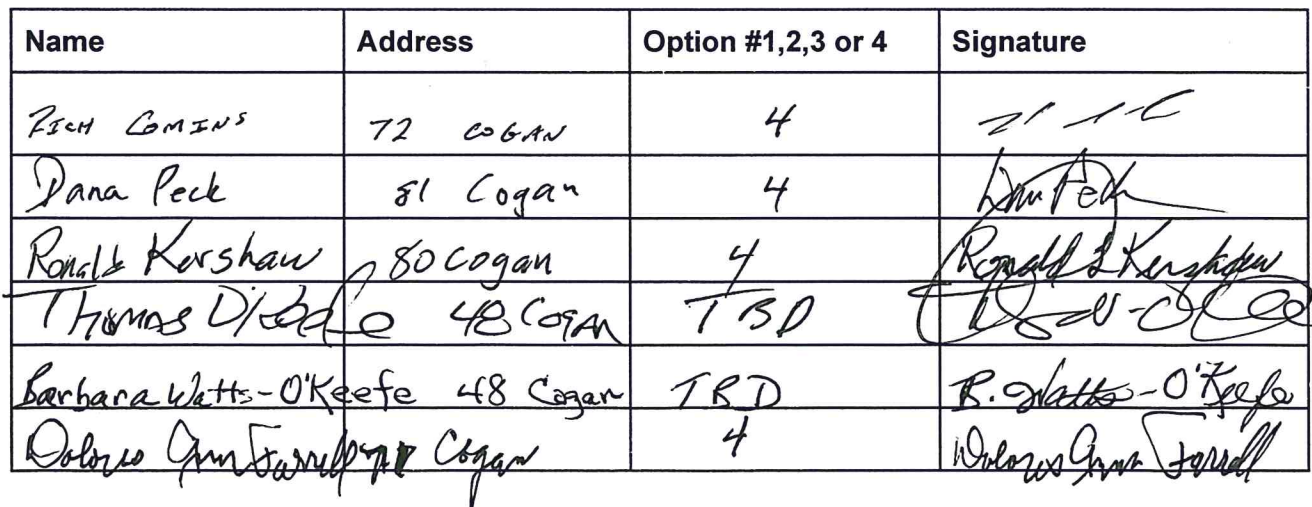 Name Address Option #1,2,3 or 4 Signature
RICH COMINS 72 COGAN 4
Dana Peck 81 Cogan 4 Dana Peck
Ronald Kershaw 80 Cogan 4 Ronald L Kershaw
Thomas 48 Cogan TBD
Barbara Watts-O'Keefe 48 Cogan TBD B. Watts-O'Keefe
Dolores Ann Farrell Cogan 4 Dolores Ann Farrell